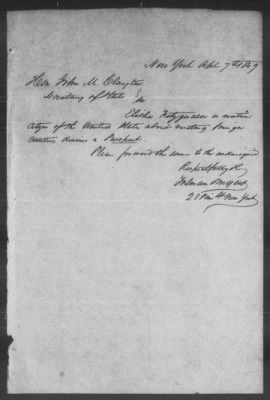 New York Apl. 7th 1849
Hon John M. Clayton
Secretary of State
Sir
Elisha Fitzgerald a native
citizen of the United States about visiting foreign
countries desires a Passport.
Please forward the same to the undersigned
Respectfully
New York